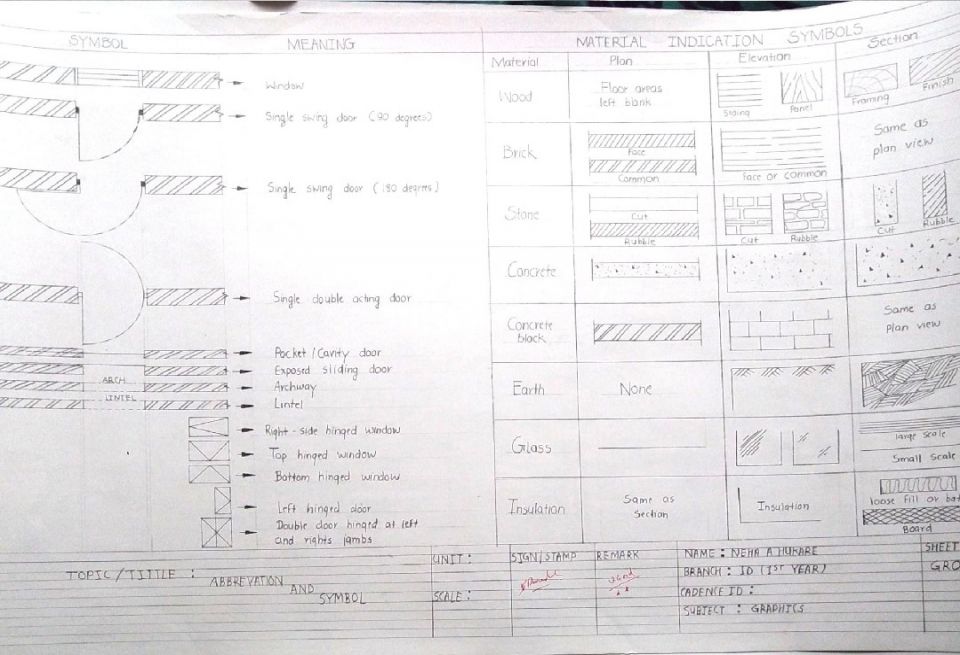 SYMBOL
MEANING
Window
Single swing door (90 degrees)
Single swing door (180 degrees)
Single double acting door
Pocket / Cavity door
Exposed sliding door
ARCH
Archway
LINTEL
Lintel
Right-side hinged window
Top hinged window
Bottom hinged window
Left hinged door
Double door hinged at left
and rights jambs
MATERIAL INDICATION SYMBOLS
Material
Plan
Elevation
Section
Wood
Floor areas
left blank
Siding
Panel
Framing
Finish
Brick
Face
Common
Face or common
Same as
plan view
Stone
Cut
Rubble
Cut
Rubble
Cut
Rubble
Concrete
Concrete
block
Same as
Plan view
Earth
None
Glass
large scale
Small Scale
Insulation
Same as
Section
Insulation
loose fill or bat
Board
TOPIC / TITTLE :
ABBREVATION
AND
SYMBOL
UNIT :
SCALE :
SIGN / STAMP
REMARK
NAME : NEHA A HUKARE
BRANCH : ID (1ST YEAR)
CADENCE ID :
SUBJECT : GRAPHICS
SHEET
GRO